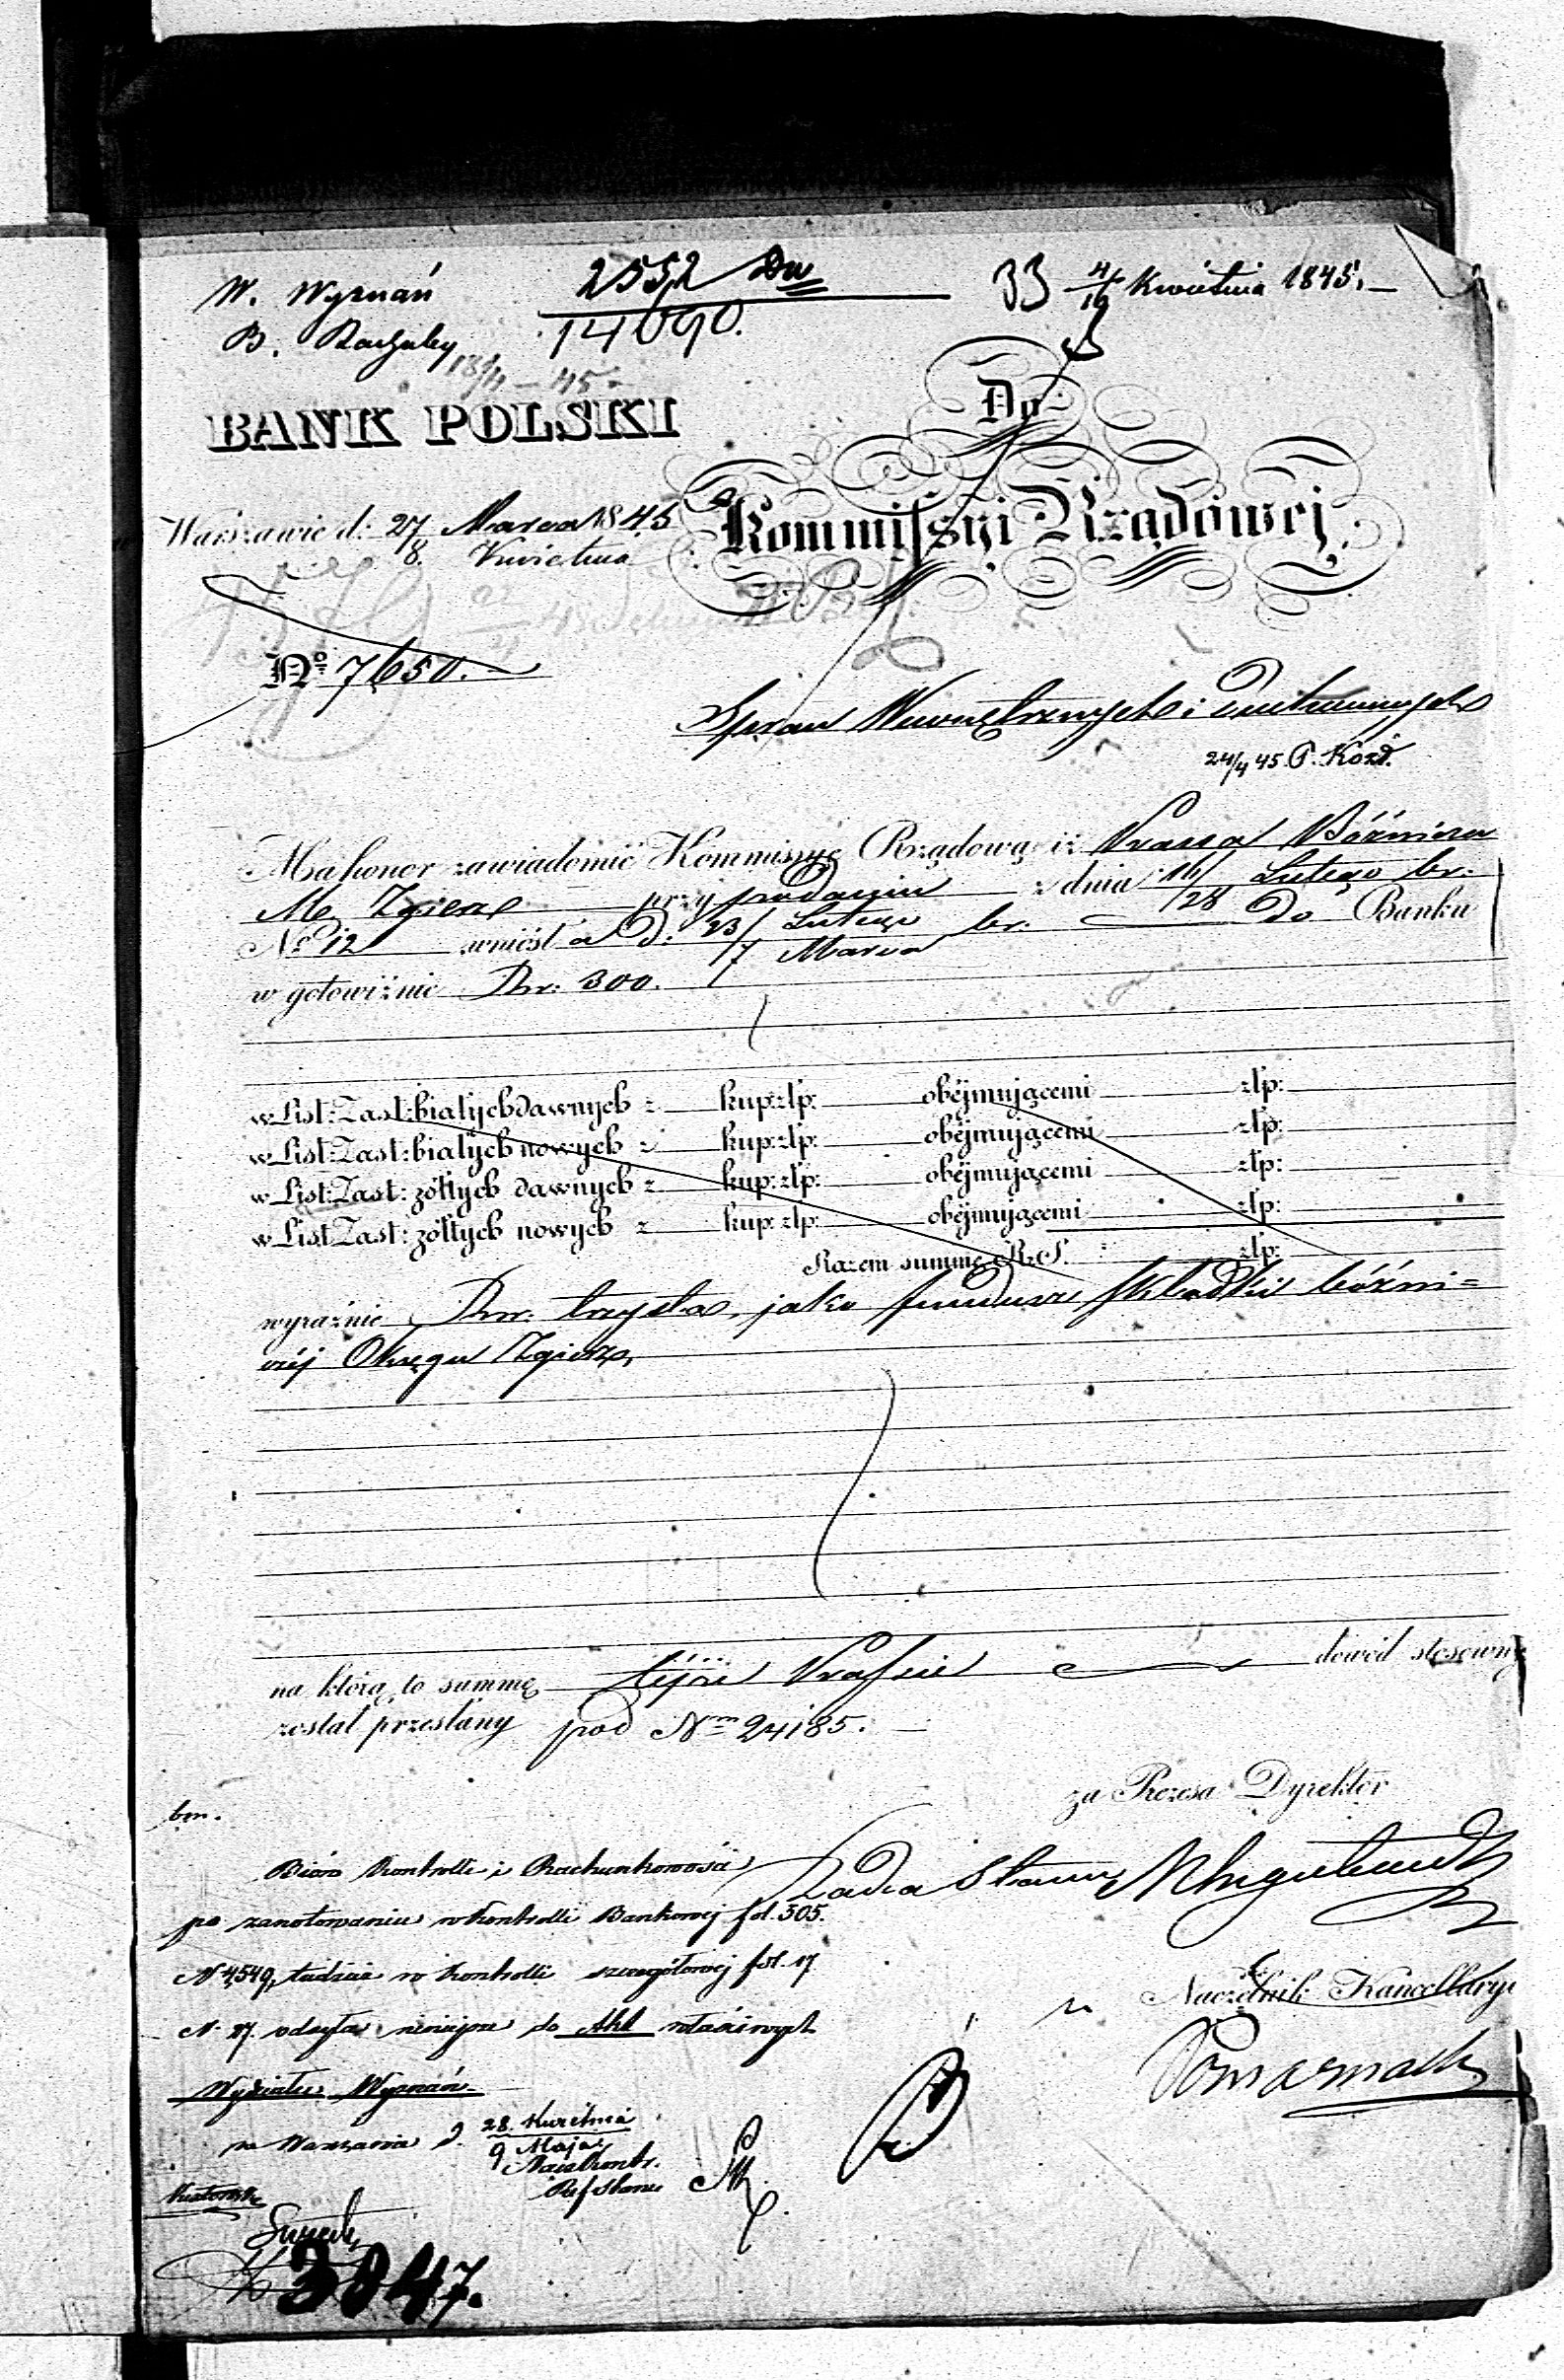 W. Wyznań
B. Rachuby
2552 Dw
14090.
33 4/16 Kwietnia 1845.
18/4 - 45.
BANK POLSKI
Do
Kommissyi Rządowej
Warszawie d: 27 Marca 1845
8. Kwietnia
No 7650.
Spraw Wewnętrznych i Duchownych
24/4 45 P. Kozd.
Ma honor zawiadomić Kommissyę Rządową iż Kassa Bóźnicza
M. Zgierz przy podaniu z dnia 16/28 Lutego br.
No 12 wniósł a d. 23/ Lutego br. Do Banku
7 Marca
w gotowiźnie Rsr. 300.
w List: Zast: białych dawnych z kup: złp: obejmującemi złp:
w List: Zast: białych nowych z kup: złp: obejmującemi złp:
w List: Zast: żółtych dawnych z kup: złp: obejmującemi złp:
w List: Zast: żółtych nowych z kup: złp: obejmującemi złp:
Razem summę R. S. złp:
wyraźnie Rsr. trzysta, jako fundusz składki bóźni=
czéj Okręgu Zgierz,
na którą to summę téjże Kassie dowód stosowny
został przesłany pod Nrm 24185.
za Prezesa Dyrektor
bm.
Radca Stanu
Biuro Kontrolli i Rachunkowości
po zanotowaniu w kontrolli Bankowej fol. 305.
N 4549, tudzież w kontrolli szczegółowej fol. 17
N. 27. odsyła niniejsze do Akt właściwych
Wydziału Wyznań
w Warszawie d. 28. Kwietnia
9 Maja
Nacz Kontr.
Ref Stanu
Naczelnik Kancellaryi
3047.